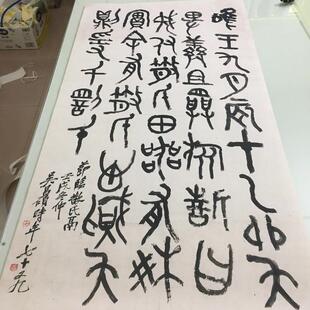 唯王九月辰才乙卯夨
卑鮮且罬旅誓曰
我既付散氏田器有爽
實余有散氏心賊
則爰千罰千
節臨散氏鬲
壬戌冬仲
吳昌碩時年七十九